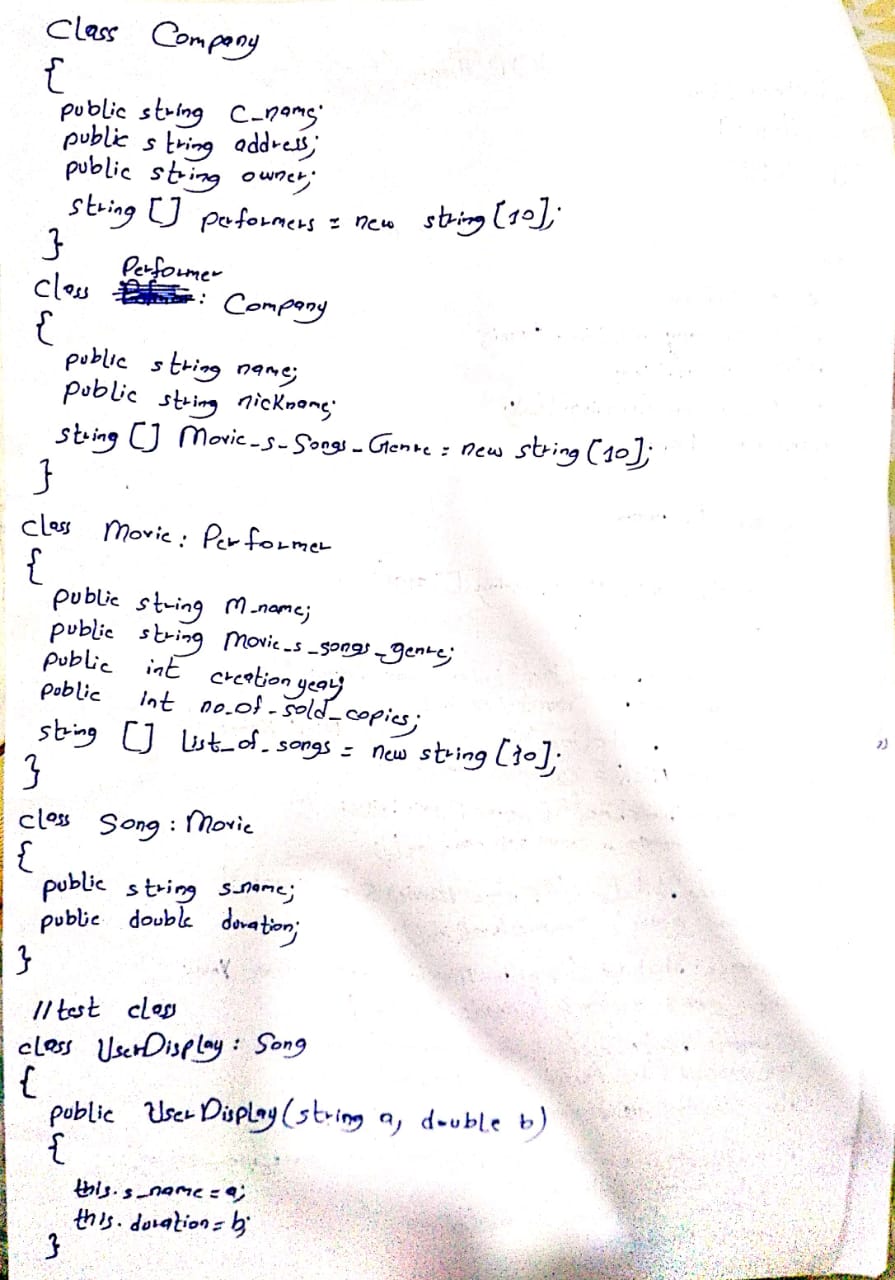 Class Company
{
public string C_name;
public string address;
public string owner;
string [] performers = new string [10];
}
Performer
class : Company
{
public string name;
public string nickname;
string [] Movie_s_Songs_Genre = new string [10];
}
class Movie : Performer
{
public string M_name;
public string Movie_s_songs_genre;
public int creation year;
public int no_of_sold_copies;
string [] List_of_songs = new string [10];
}
class Song : Movie
{
public string s_name;
public double duration;
}
//test class
class UserDisplay : Song
{
public UserDisplay (string a, double b)
{
this.s_name = a;
this.duration = b;
}